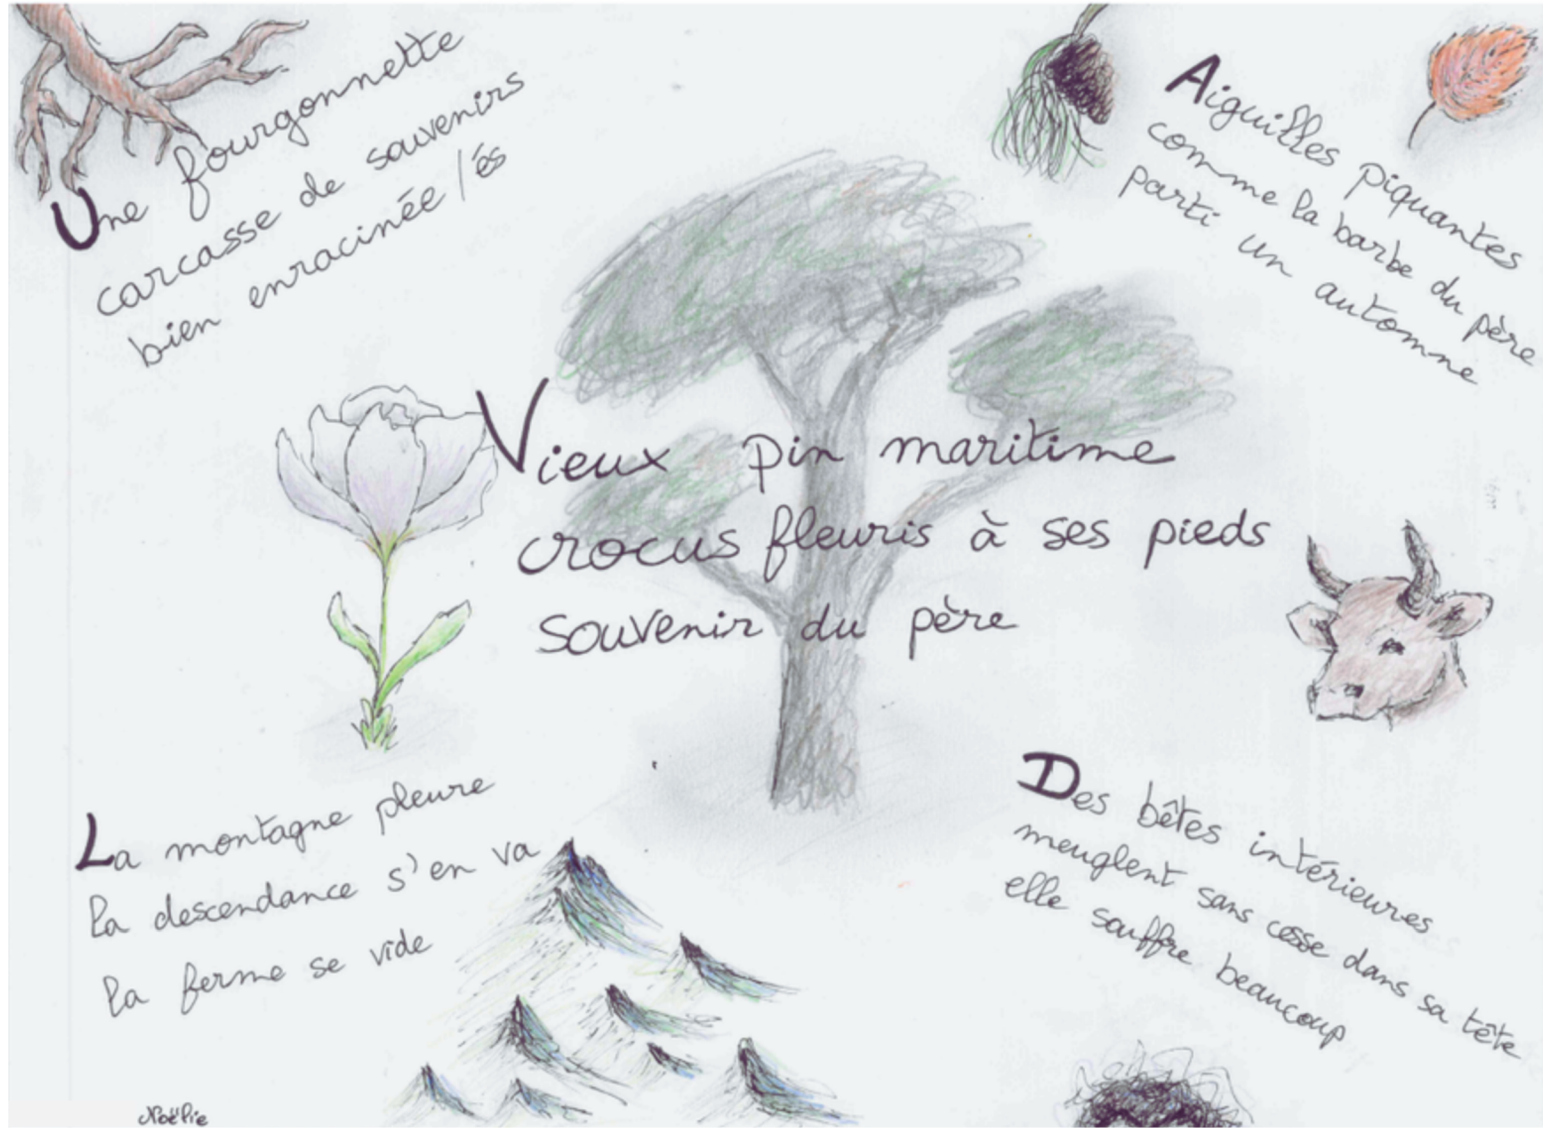 Une fourgonnette
carcasse de souvenirs
bien enracinée/és
Aiguilles piquantes
comme la barbe du père
parti un automne
Vieux pin maritime
crocus fleuris à ses pieds
souvenir du père
La montagne pleure
la descendance s'en va
la ferme se vide
Des bêtes intérieures
meuglent sans cesse dans sa tête
elle souffre beaucoup
Noëlie